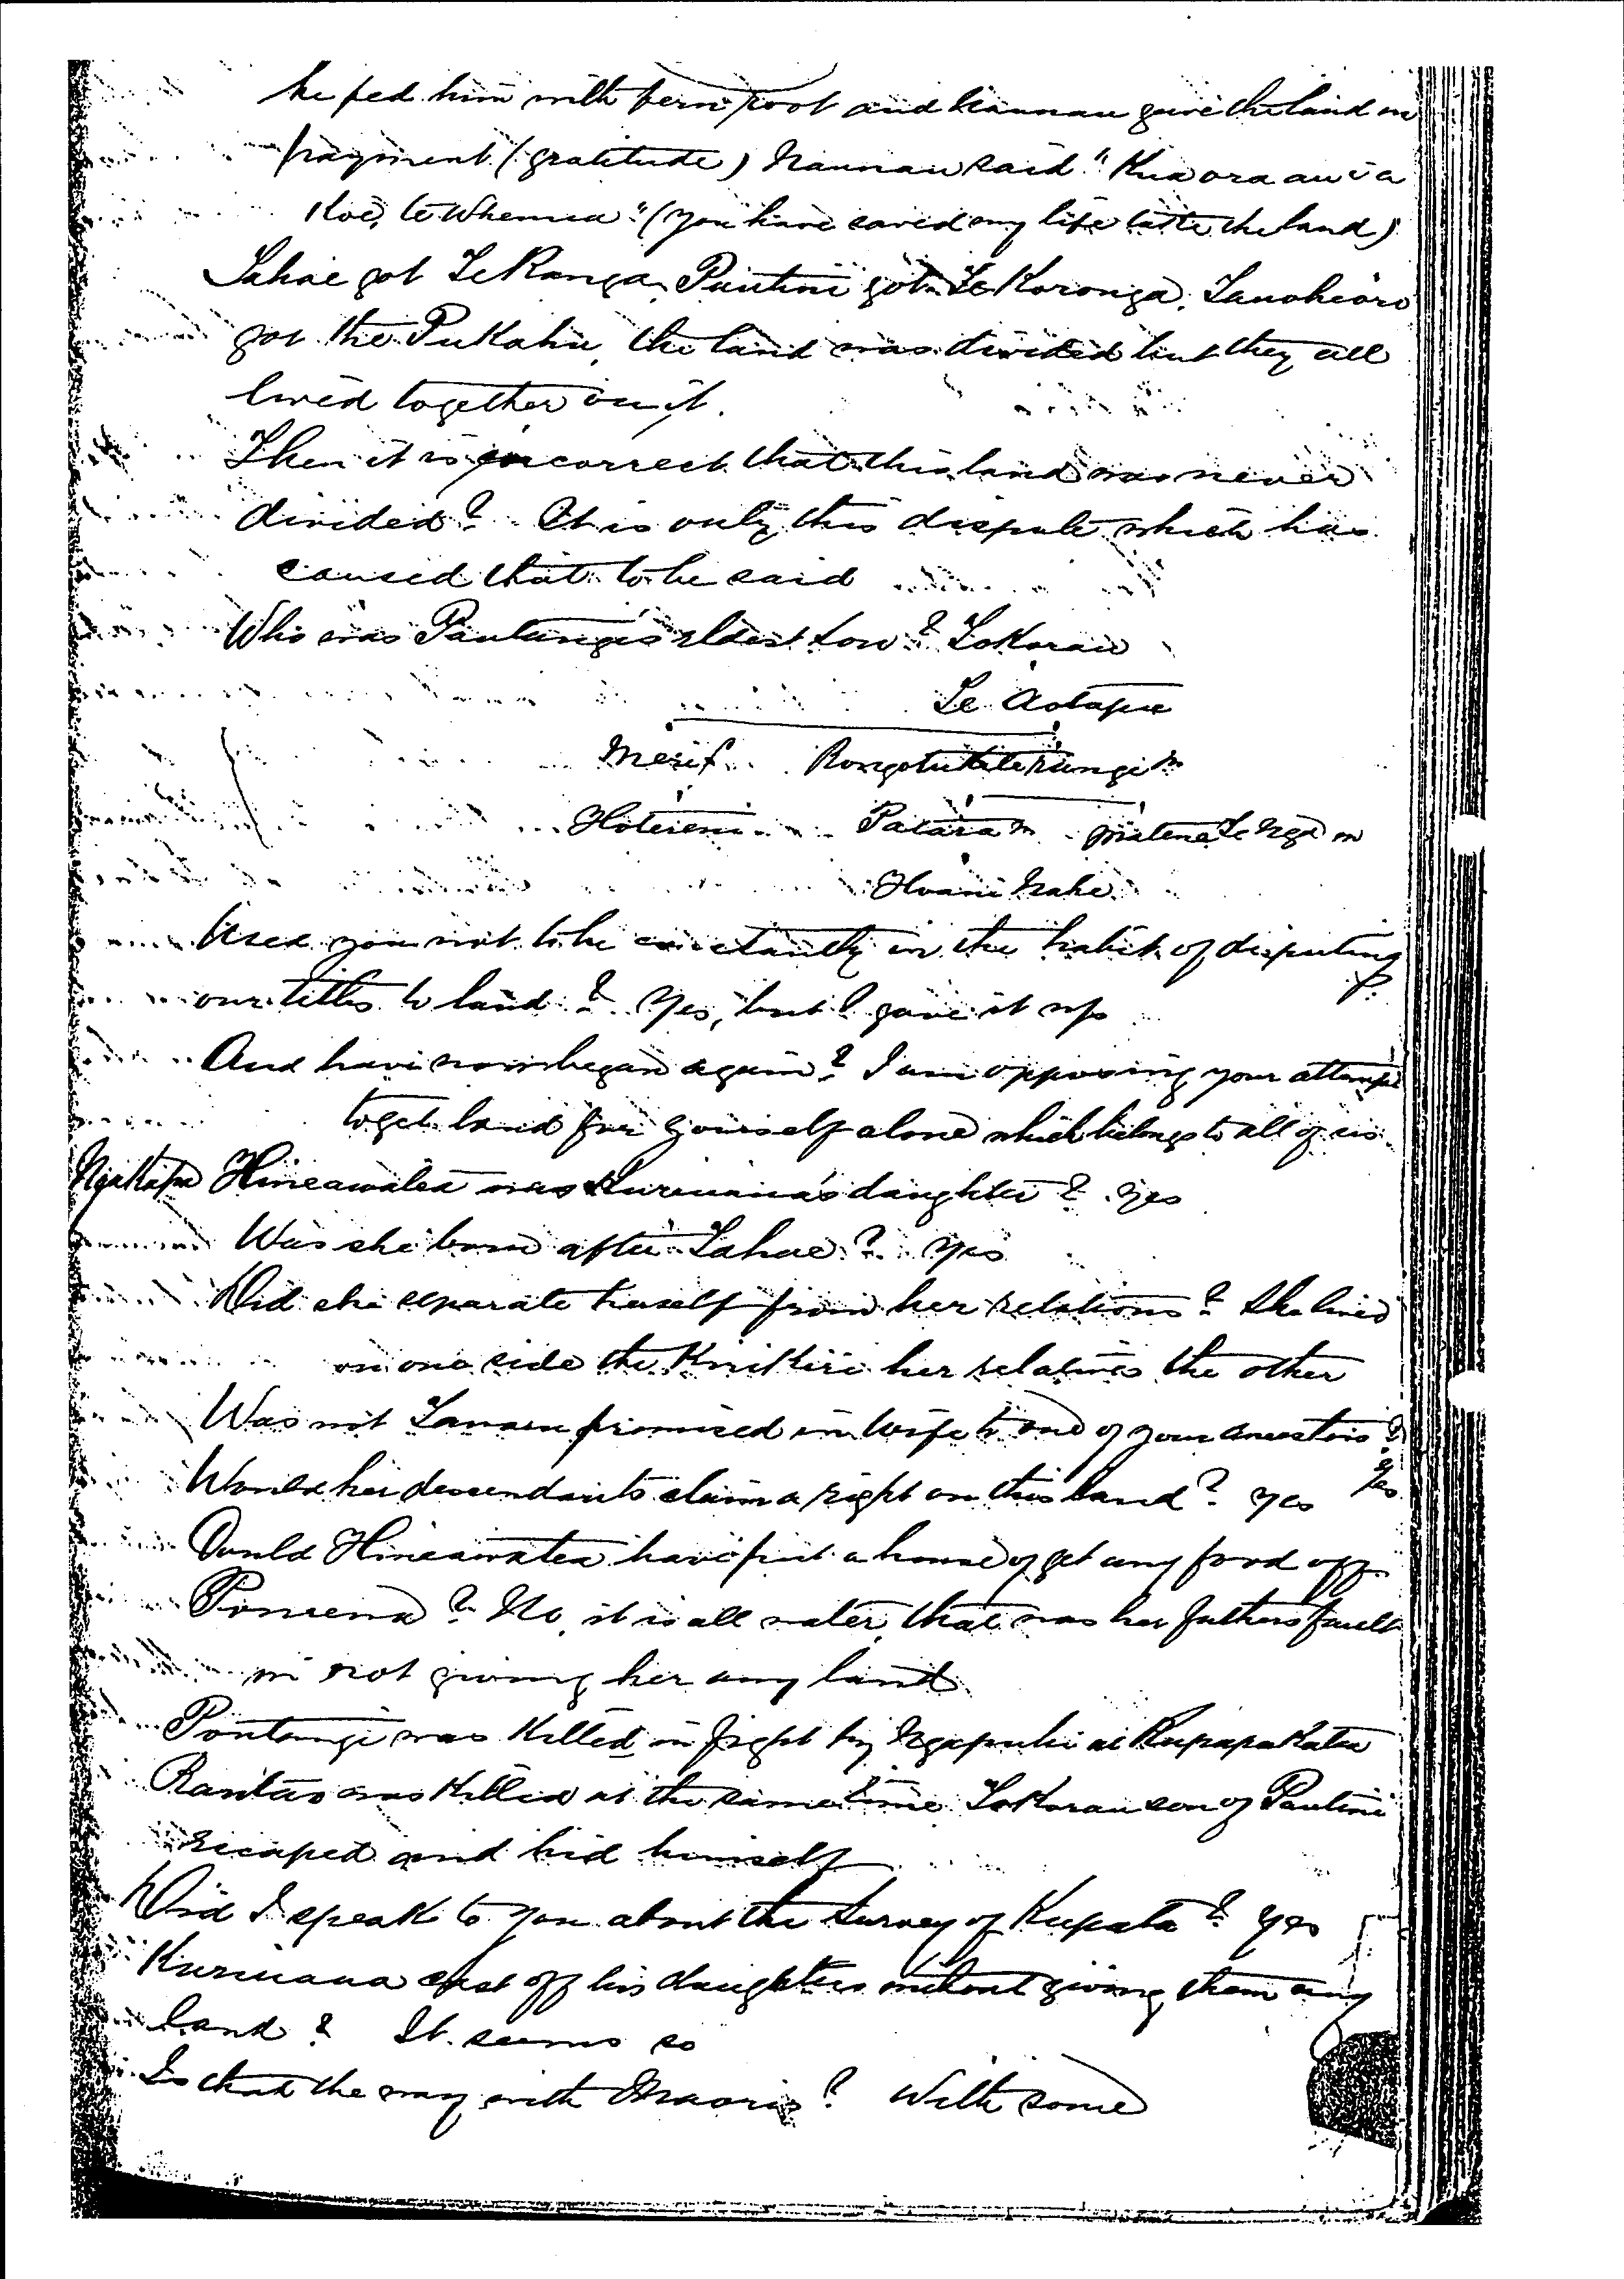 he fed him with fern root and Naunau gave the land in
payment (gratitude) Naunau said "Kua ora au i a
Koe, te Whenua" (you have saved my life take the land)
Tahae got Te Ranga, Pautini got Te Koronga. Tanohiaro
got the PuKahu, the land was divided but they all
lived together on it.
Then it is incorrect that this land was never
divided? It is only this dispute which has
caused that to be said
Who was Pautangi's eldest son? ToKorau
Te Aotapu
Meri f. RongotuKiteRangi m
Hoterini Patara m Matene Te Nga m
Hoani Nahe
Used you not to be constantly in the habit of disputing
our titles to land? Yes, but I gave it up
And have now began again? I am opposing your attempt
to get land for yourself alone which belongs to all of us.
NgaKapa Hineawatea was Kuriuaua's daughter? Yes
Was she born after Tahae? Yes
Did she separate herself from her relations? She lived
on one side the KuiKiri her relatives the other
Was not promised in wife to one of your ancestors?
Yes
Would her descendants claim a right on this land? Yes
Could Hineawatea have put a house or get any food off
No, it is all water, that was her fathers fault
in not giving her any land
Pautangi was Killed in fight by Ngapuhi at
was Killed at the same time ToKorau son of Pautini
escaped and hid himself
Did I speak to you about the Survey of Kupata? Yes
Kuriuaua cast off his daughters without giving them any
land? It seems so
Is that the way with Maoris? With some